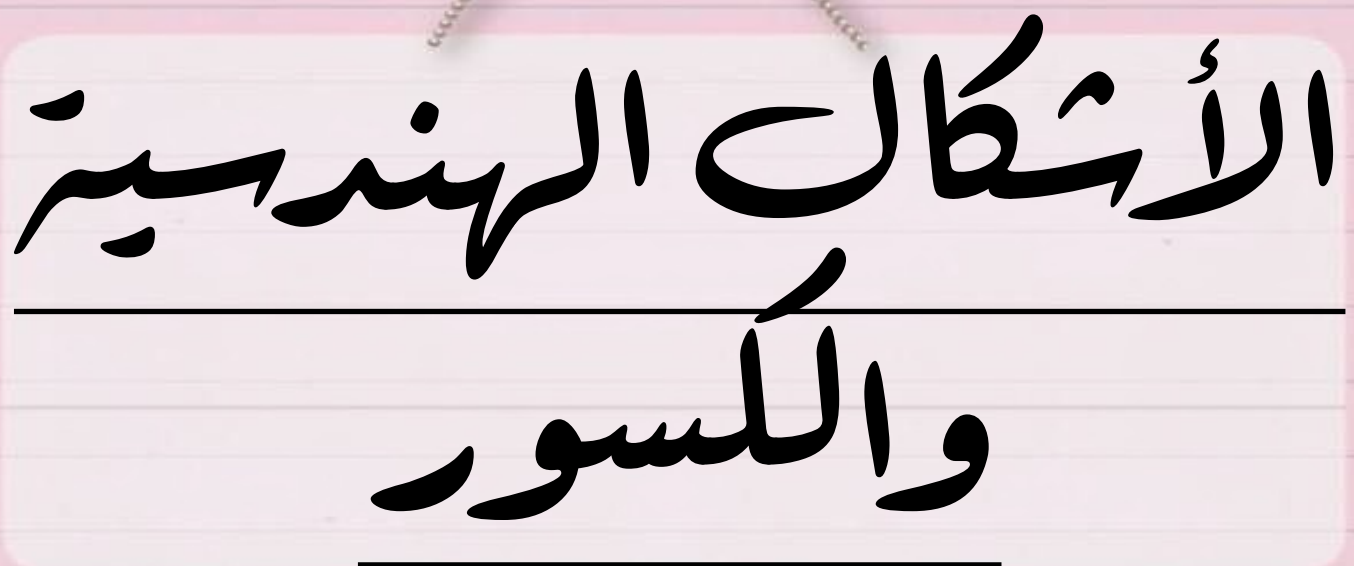 الأشكال الهندسية
والكسور